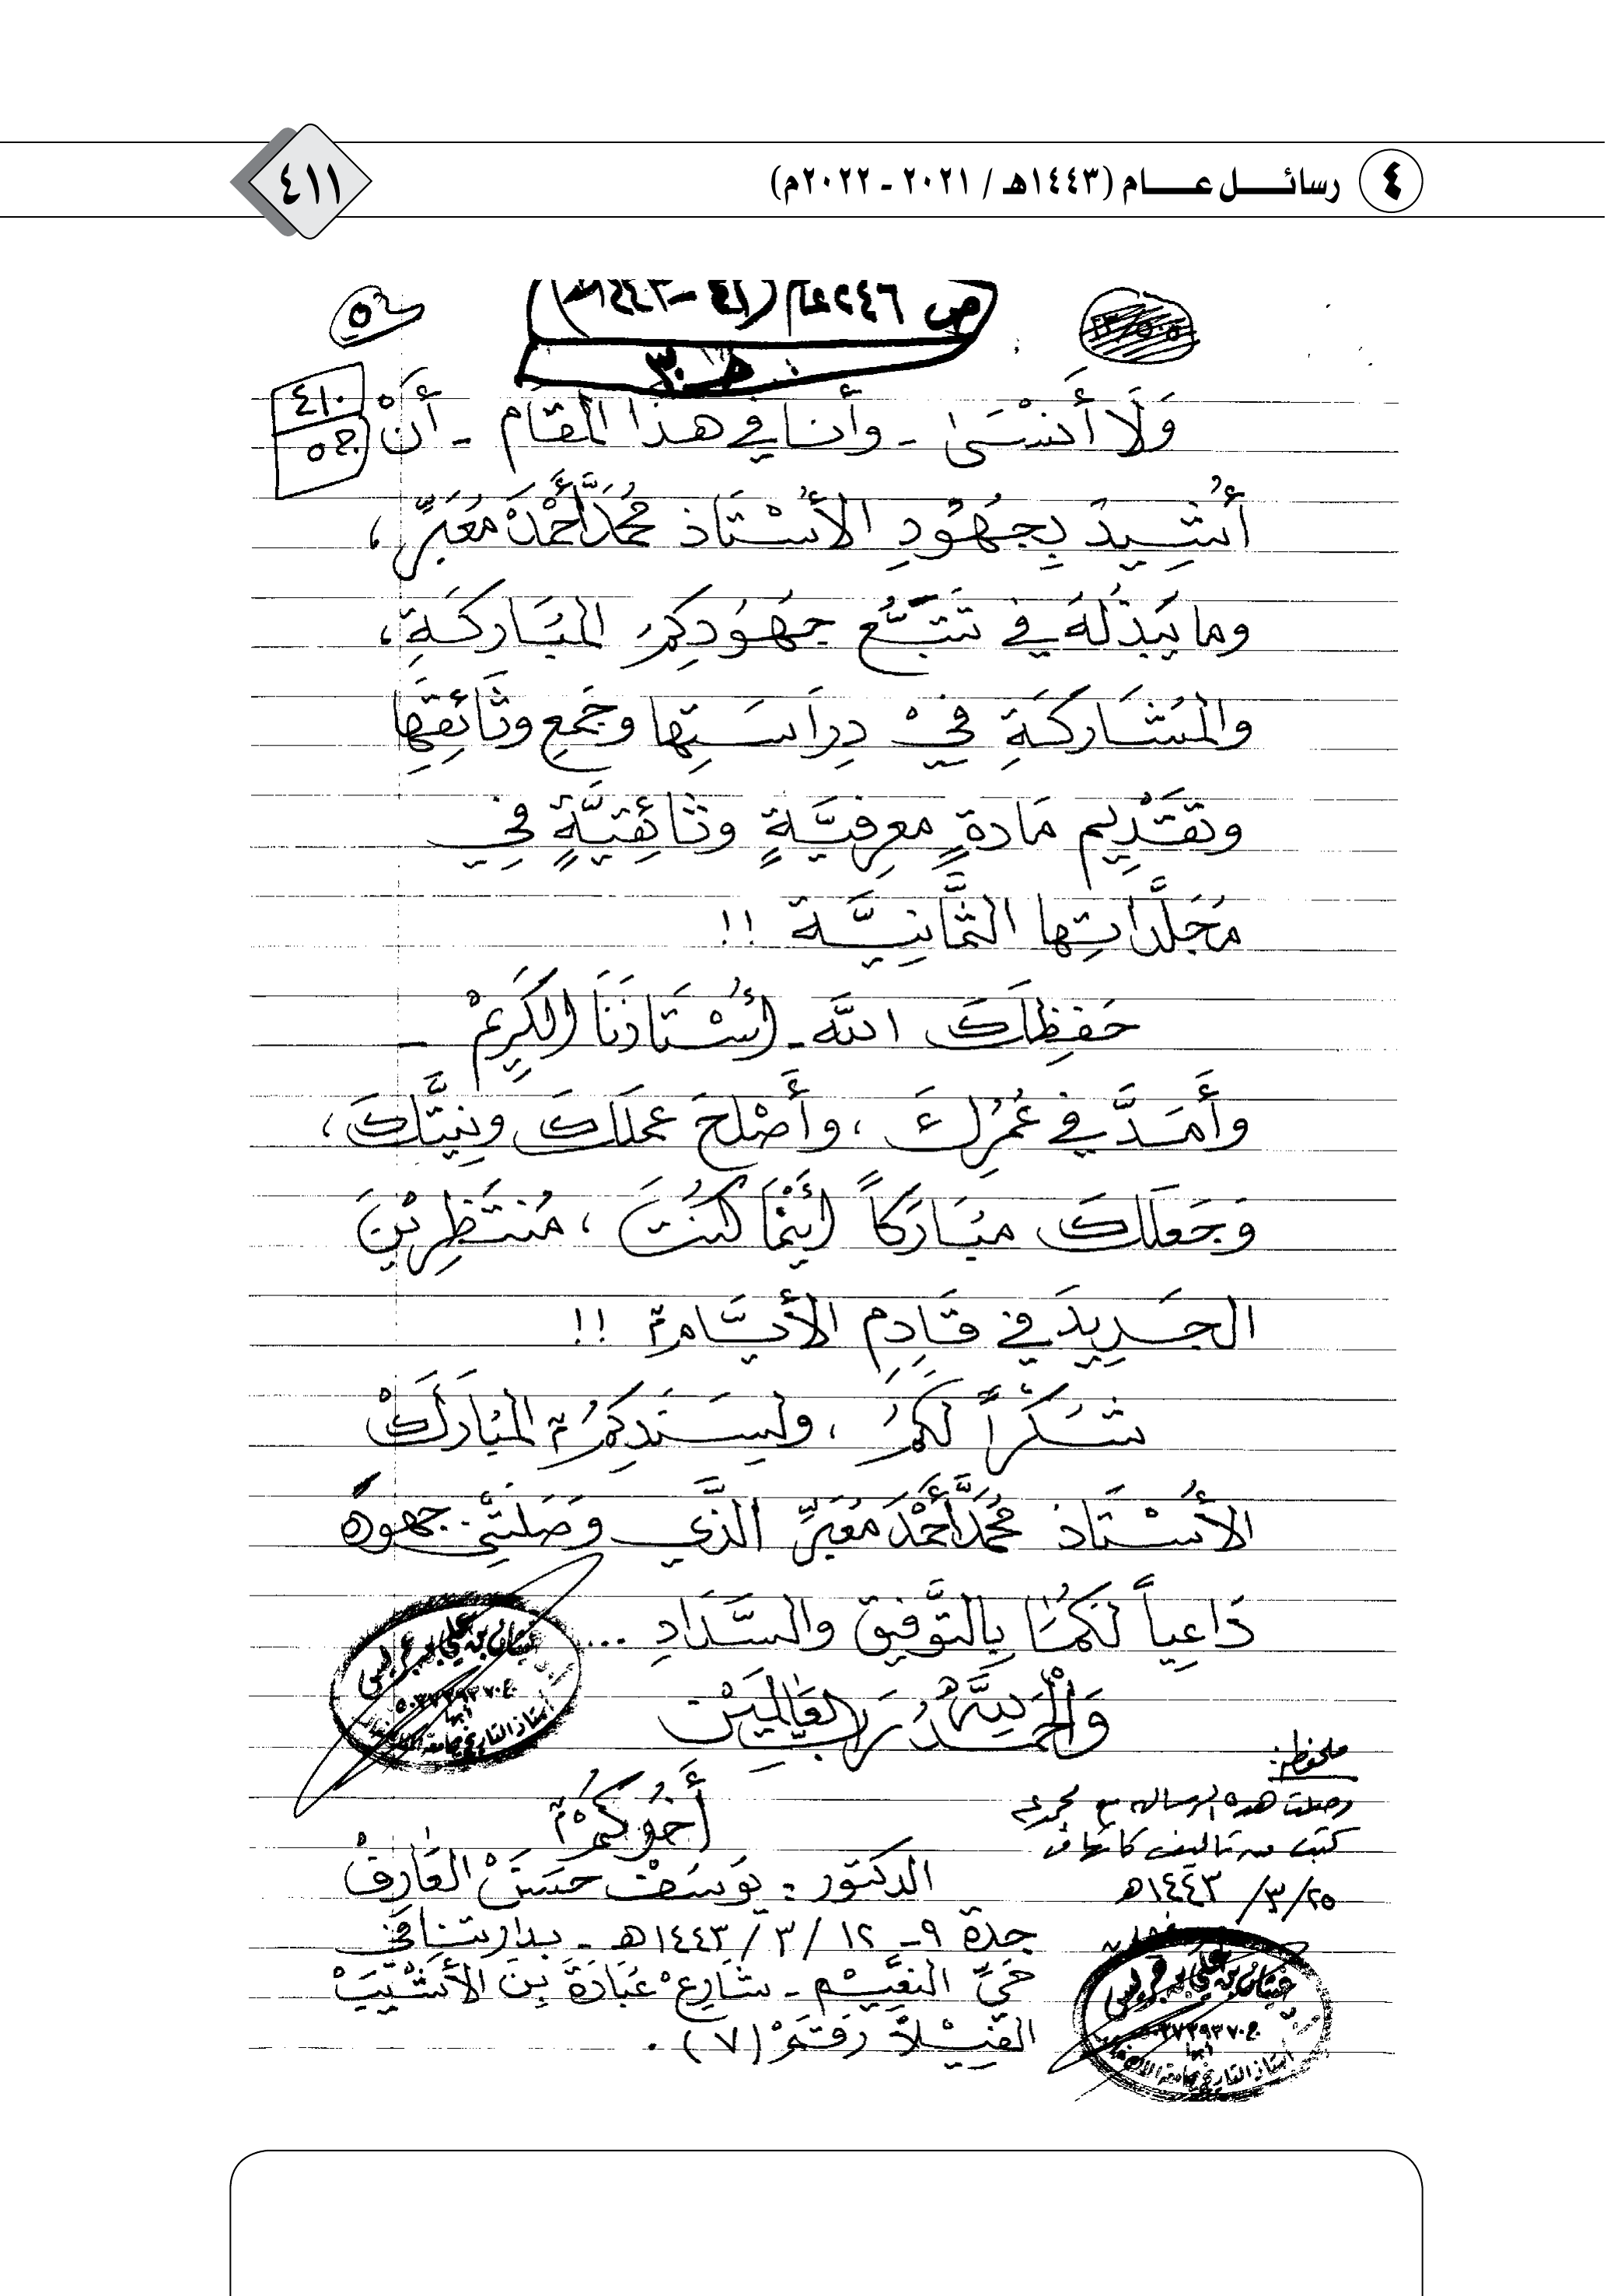 ٤ رسائـــل عـــام (١٤٤٣هـ / ٢٠٢١ - ٢٠٢٢م)
٤١١
ص ٢٤٦
٤١٠
وَلَا أَنْسَىٰ - وأنا في هذا المقام - أَنْ
أُشِيدَ بِجُهُودِ الأُسْتَاذ مُحَمَّد أَحْمَدْ مُعَبِّرْ،
وما يَبْذُلُهُ في تَتَبُّعِ جُهُودِكُمُ المُبَارَكَةِ،
والمُشَارَكَةِ فِيْ دِرَاسَتِها وجَمْعِ وثَائِقِهَا
وتقْدِيم مَادةٍ معرِفيَّةٍ وثَائِقِيَّةٍ فِي
مُجَلَّدَاتِها الثَّمَانِيَّة !!
حَفِظَكَ اللَّه - أُسْتَاذَنَا الكَرِيمْ -
وأَمَدَّ في عُمُرِكَ ، وأَصْلحَ عملَكَ ونِيَّتَكَ ،
وَجَعَلَكَ مُبَارَكاً أَيْنَمَا كُنْتَ ، مُنتَظِرِيْنَ
الجَدِيدَ في قَادِمِ الأيَّام !!
شُكْراً لَكُمُ ، ولِسَنَدِكُمُ المُبَارَكْ
الأُسْتَاذ مُحَمَّد أَحْمَدْ مُعَبِّرْ الذَّي وَصَلَتْنِي جهوده
دَاعِياً لَكُمَا بِالتَّوْفِيقِ والسَّدَادِ ...
وَالْحَمْدُ لِلَّهِ رَبِّ العَالَمِيْنَ
أَخُوكُمْ
الدكتور : يُوسفْ حَسَنْ العَارِفْ
جدة ٩ - ١٢ / ٣ / ١٤٤٣هـ - بدارتنا في
حَيِّ النعِيْم - شَارِعْ عُبَادَةَ بِنَ الأَشْيَبْ
الفِيْلّا رَقَمْ (٧) .
ملحوظة:
وصلت هذه الرسالة مع مجموعة
كتب من تأليف كاتبها في
٢٥ / ٣ / ١٤٤٣هـ